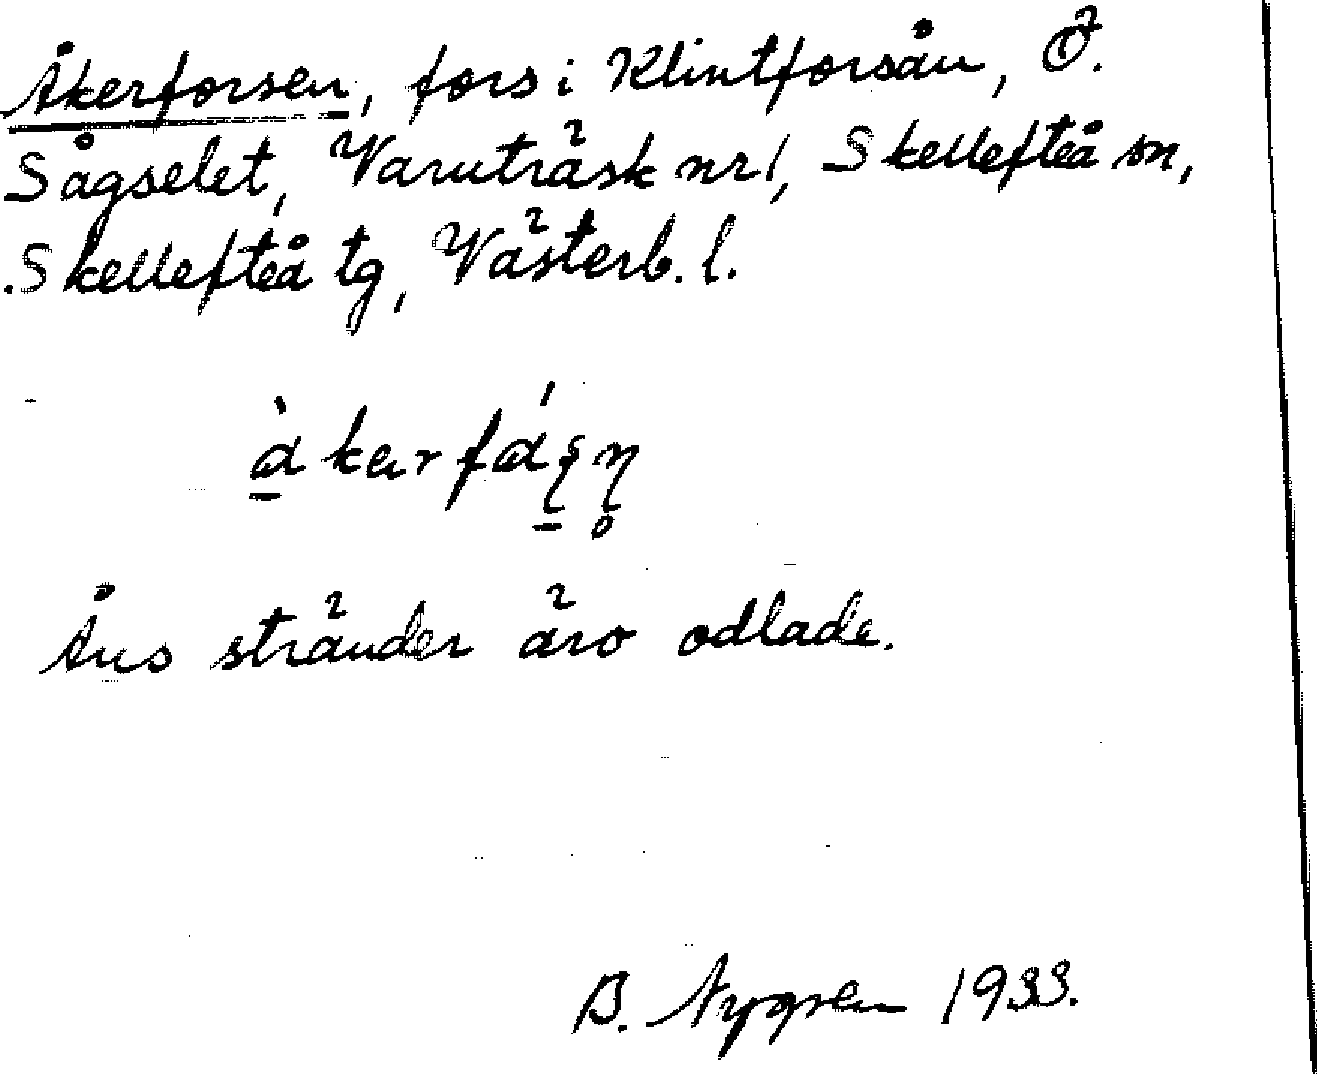 Åkerforsen, fors i Klintforsån, Ö.
Sågselet, Varuträsk nr 1, Skellefteå sn,
Skellefteå tg, Västerb. l.
Åns stränder äro odlade.
B. Nygren 1933.